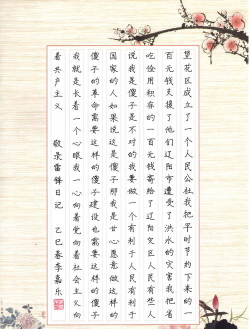 望花区成立了一个人民公社我把平时节约下来的一
百元钱支援了他们辽阳市遭受了洪水的灾害我把省
吃俭用积存的一百元钱寄给了辽阳灾区人民有些人
说我是傻子是不对的我要做一个有利于人民有利于
国家的人如果说这是傻子那我是甘心愿意做这样的
傻子的革命需要这样的傻子建设也需要这样的傻子
我就是长着一个心眼我一心向着党向着社会主义向
着共产主义
敬录雷锋日记 乙巳春李嘉乐